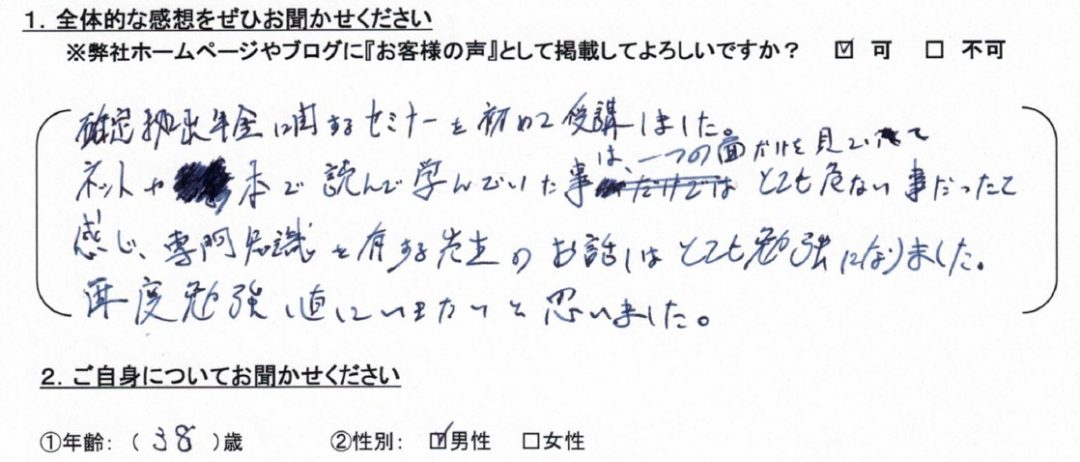 1. 全体的な感想をぜひお聞かせください
※弊社ホームページやブログに『お客様の声』として掲載してよろしいですか? ☑ 可 □ 不可
確定拠出年金に関するセミナーを初めて受講しました。
は、一つの面だけを見ていて
ネットや本で読んで学んでいた事だけではとても危ない事だったと
感じ、専門知識を有する先生のお話しはとても勉強になりました。
再度勉強し直していきたいと思いました。
2. ご自身についてお聞かせください
①年齢: ( 38 )歳 ②性別: ☑男性 □女性